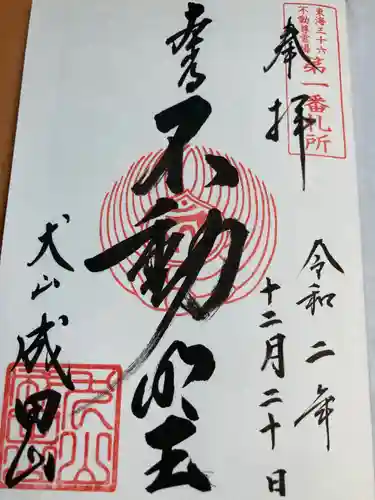 東海三十六
不動尊霊場
第一番札所
奉拝
令和二年
十二月二十日
大聖不動明王
犬山成田山